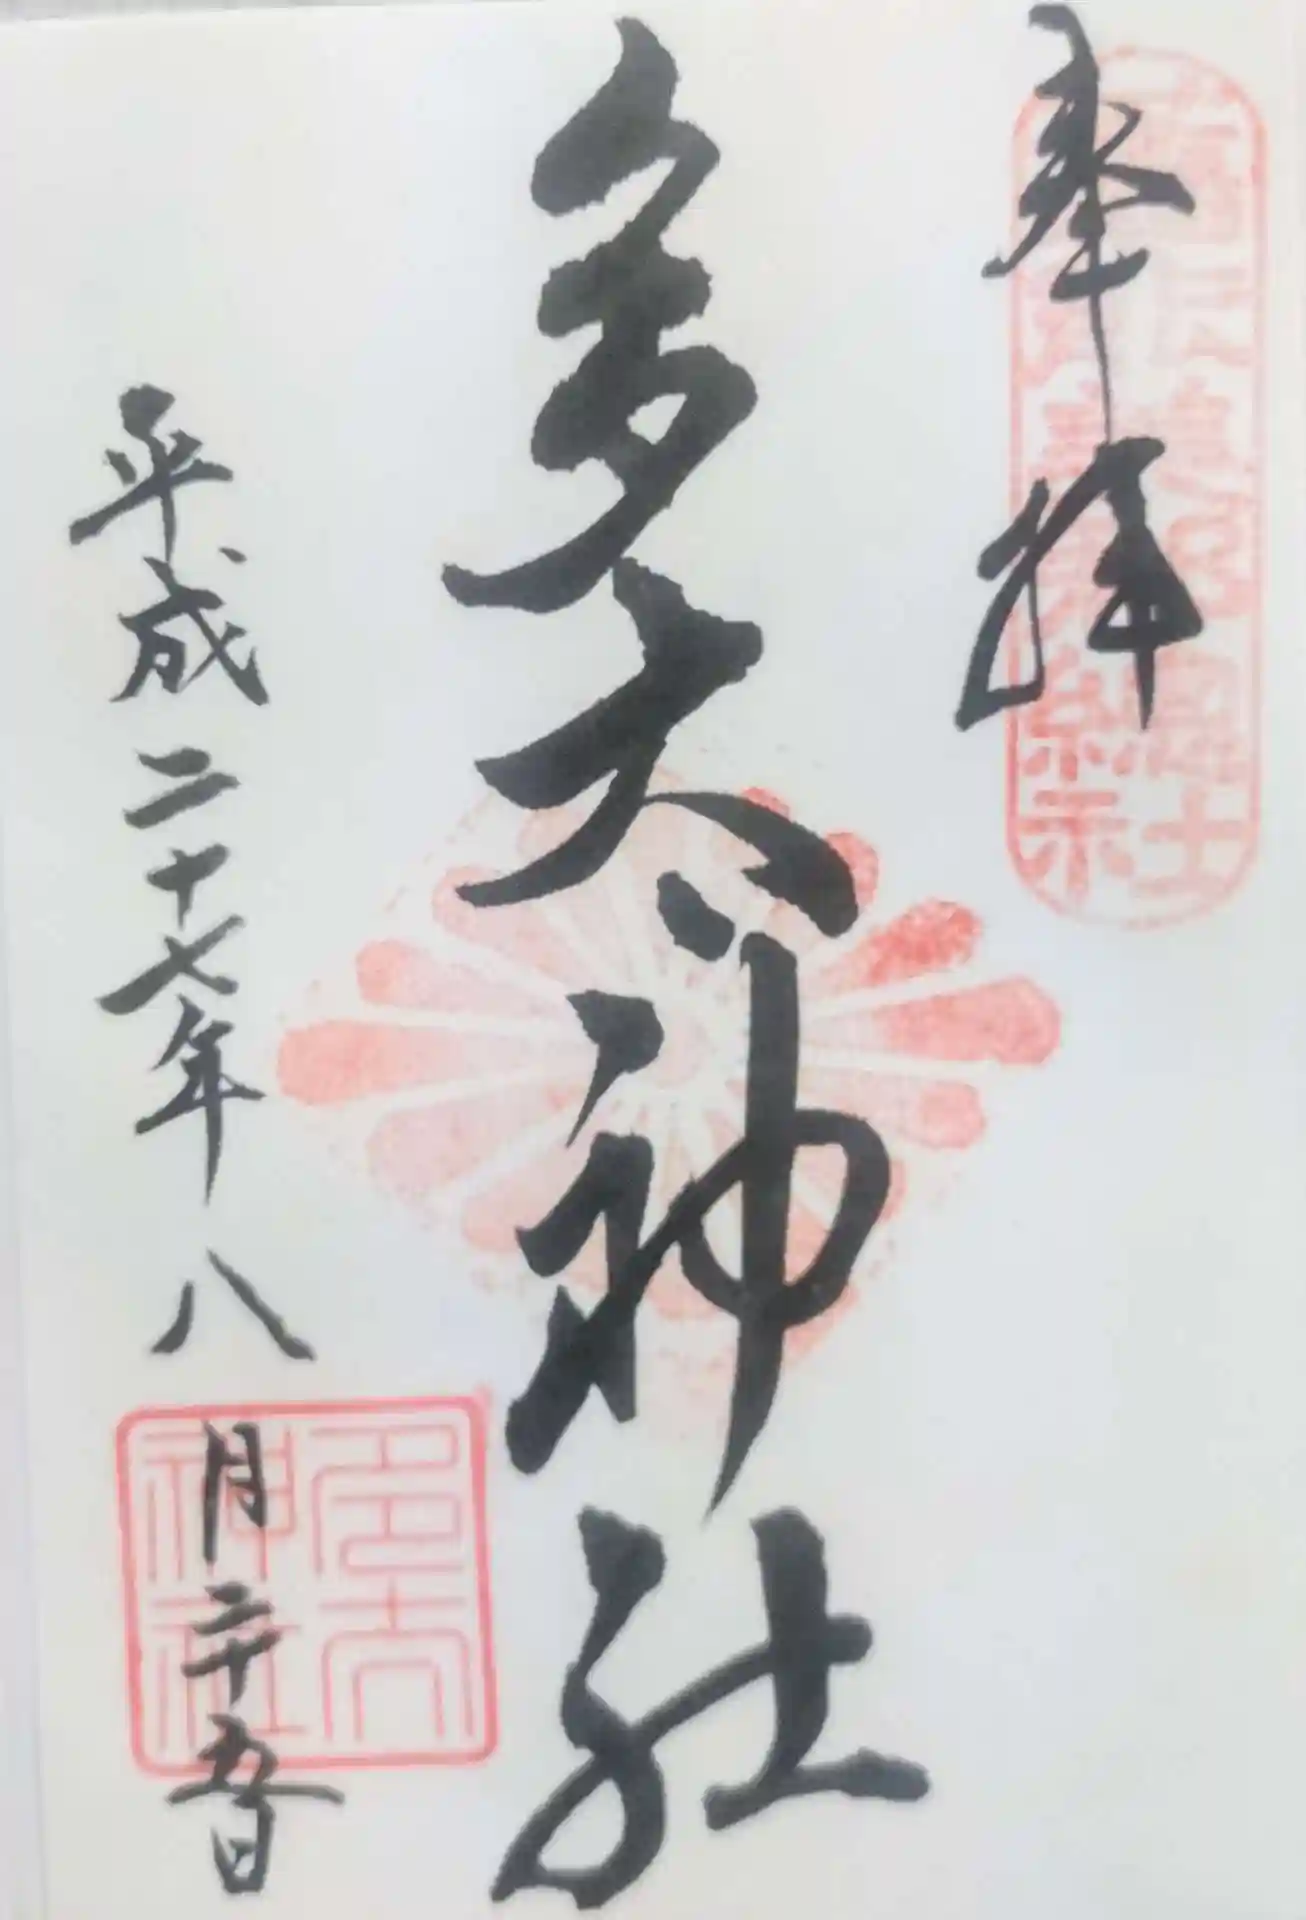 奉拝
多太神社
平成二十七年八月二十五日
多太
神社